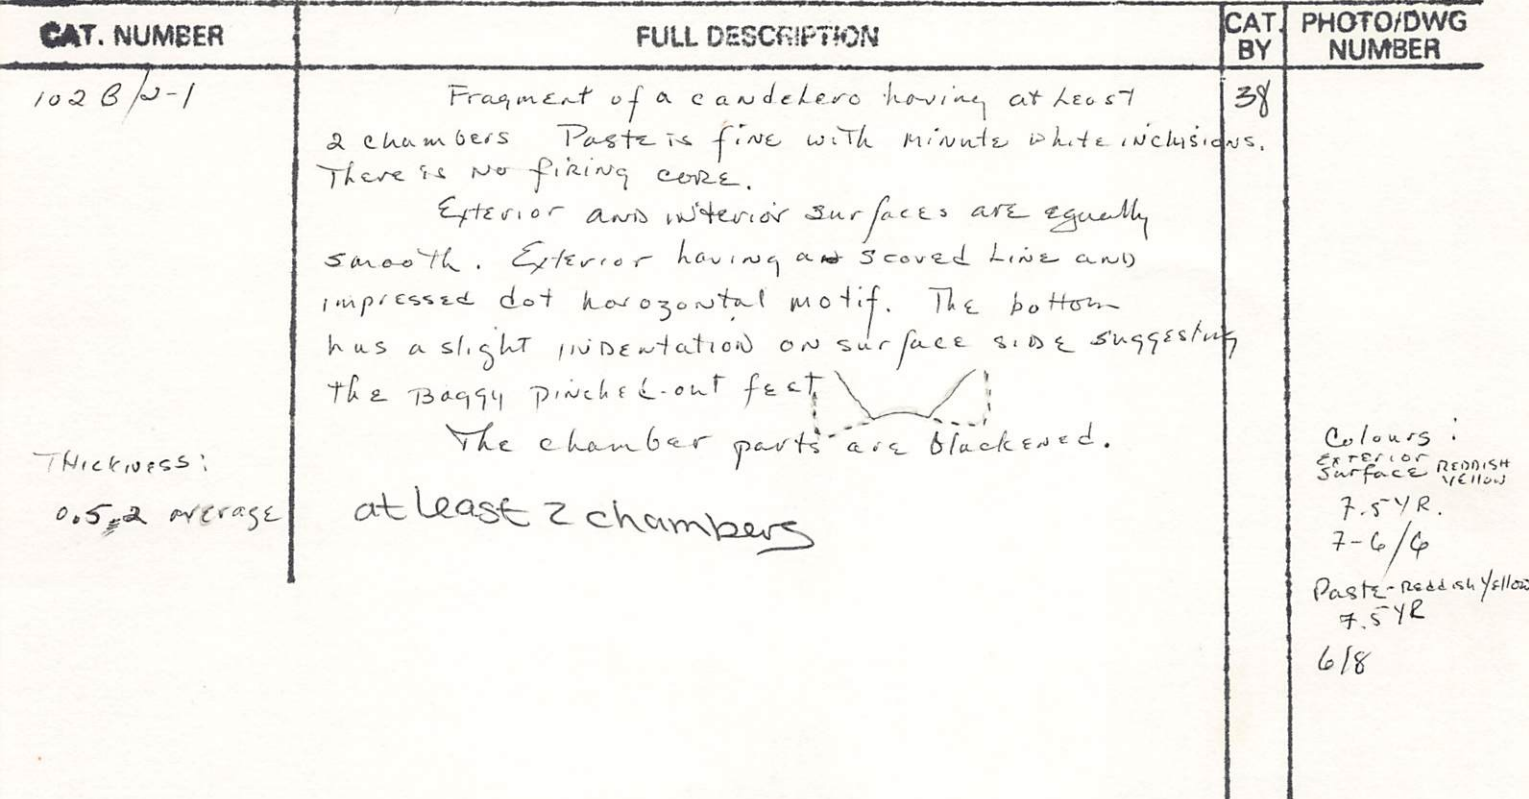 CAT. NUMBER
FULL DESCRIPTION
CAT. BY
PHOTO/DWG NUMBER
102 B/2-1
Fragment of a candelero having at least
2 chambers Paste is fine with minute white inclusions.
There is no firing core.
Exterior and interior surfaces are equally
smooth. Exterior having a scored Line and
impressed dot horozontal motif. The bottom
has a slight indentation on surface side suggesting
the Baggy pinched-out feet
The chamber parts are blackened.
at least 2 chambers
38
Thickness:
0.5,2 average
Colours:
Exterior
Surface REDDISH YELLOW
7.5 YR.
7-6/6
Paste-Reddish Yellow
7.5 YR
6/8